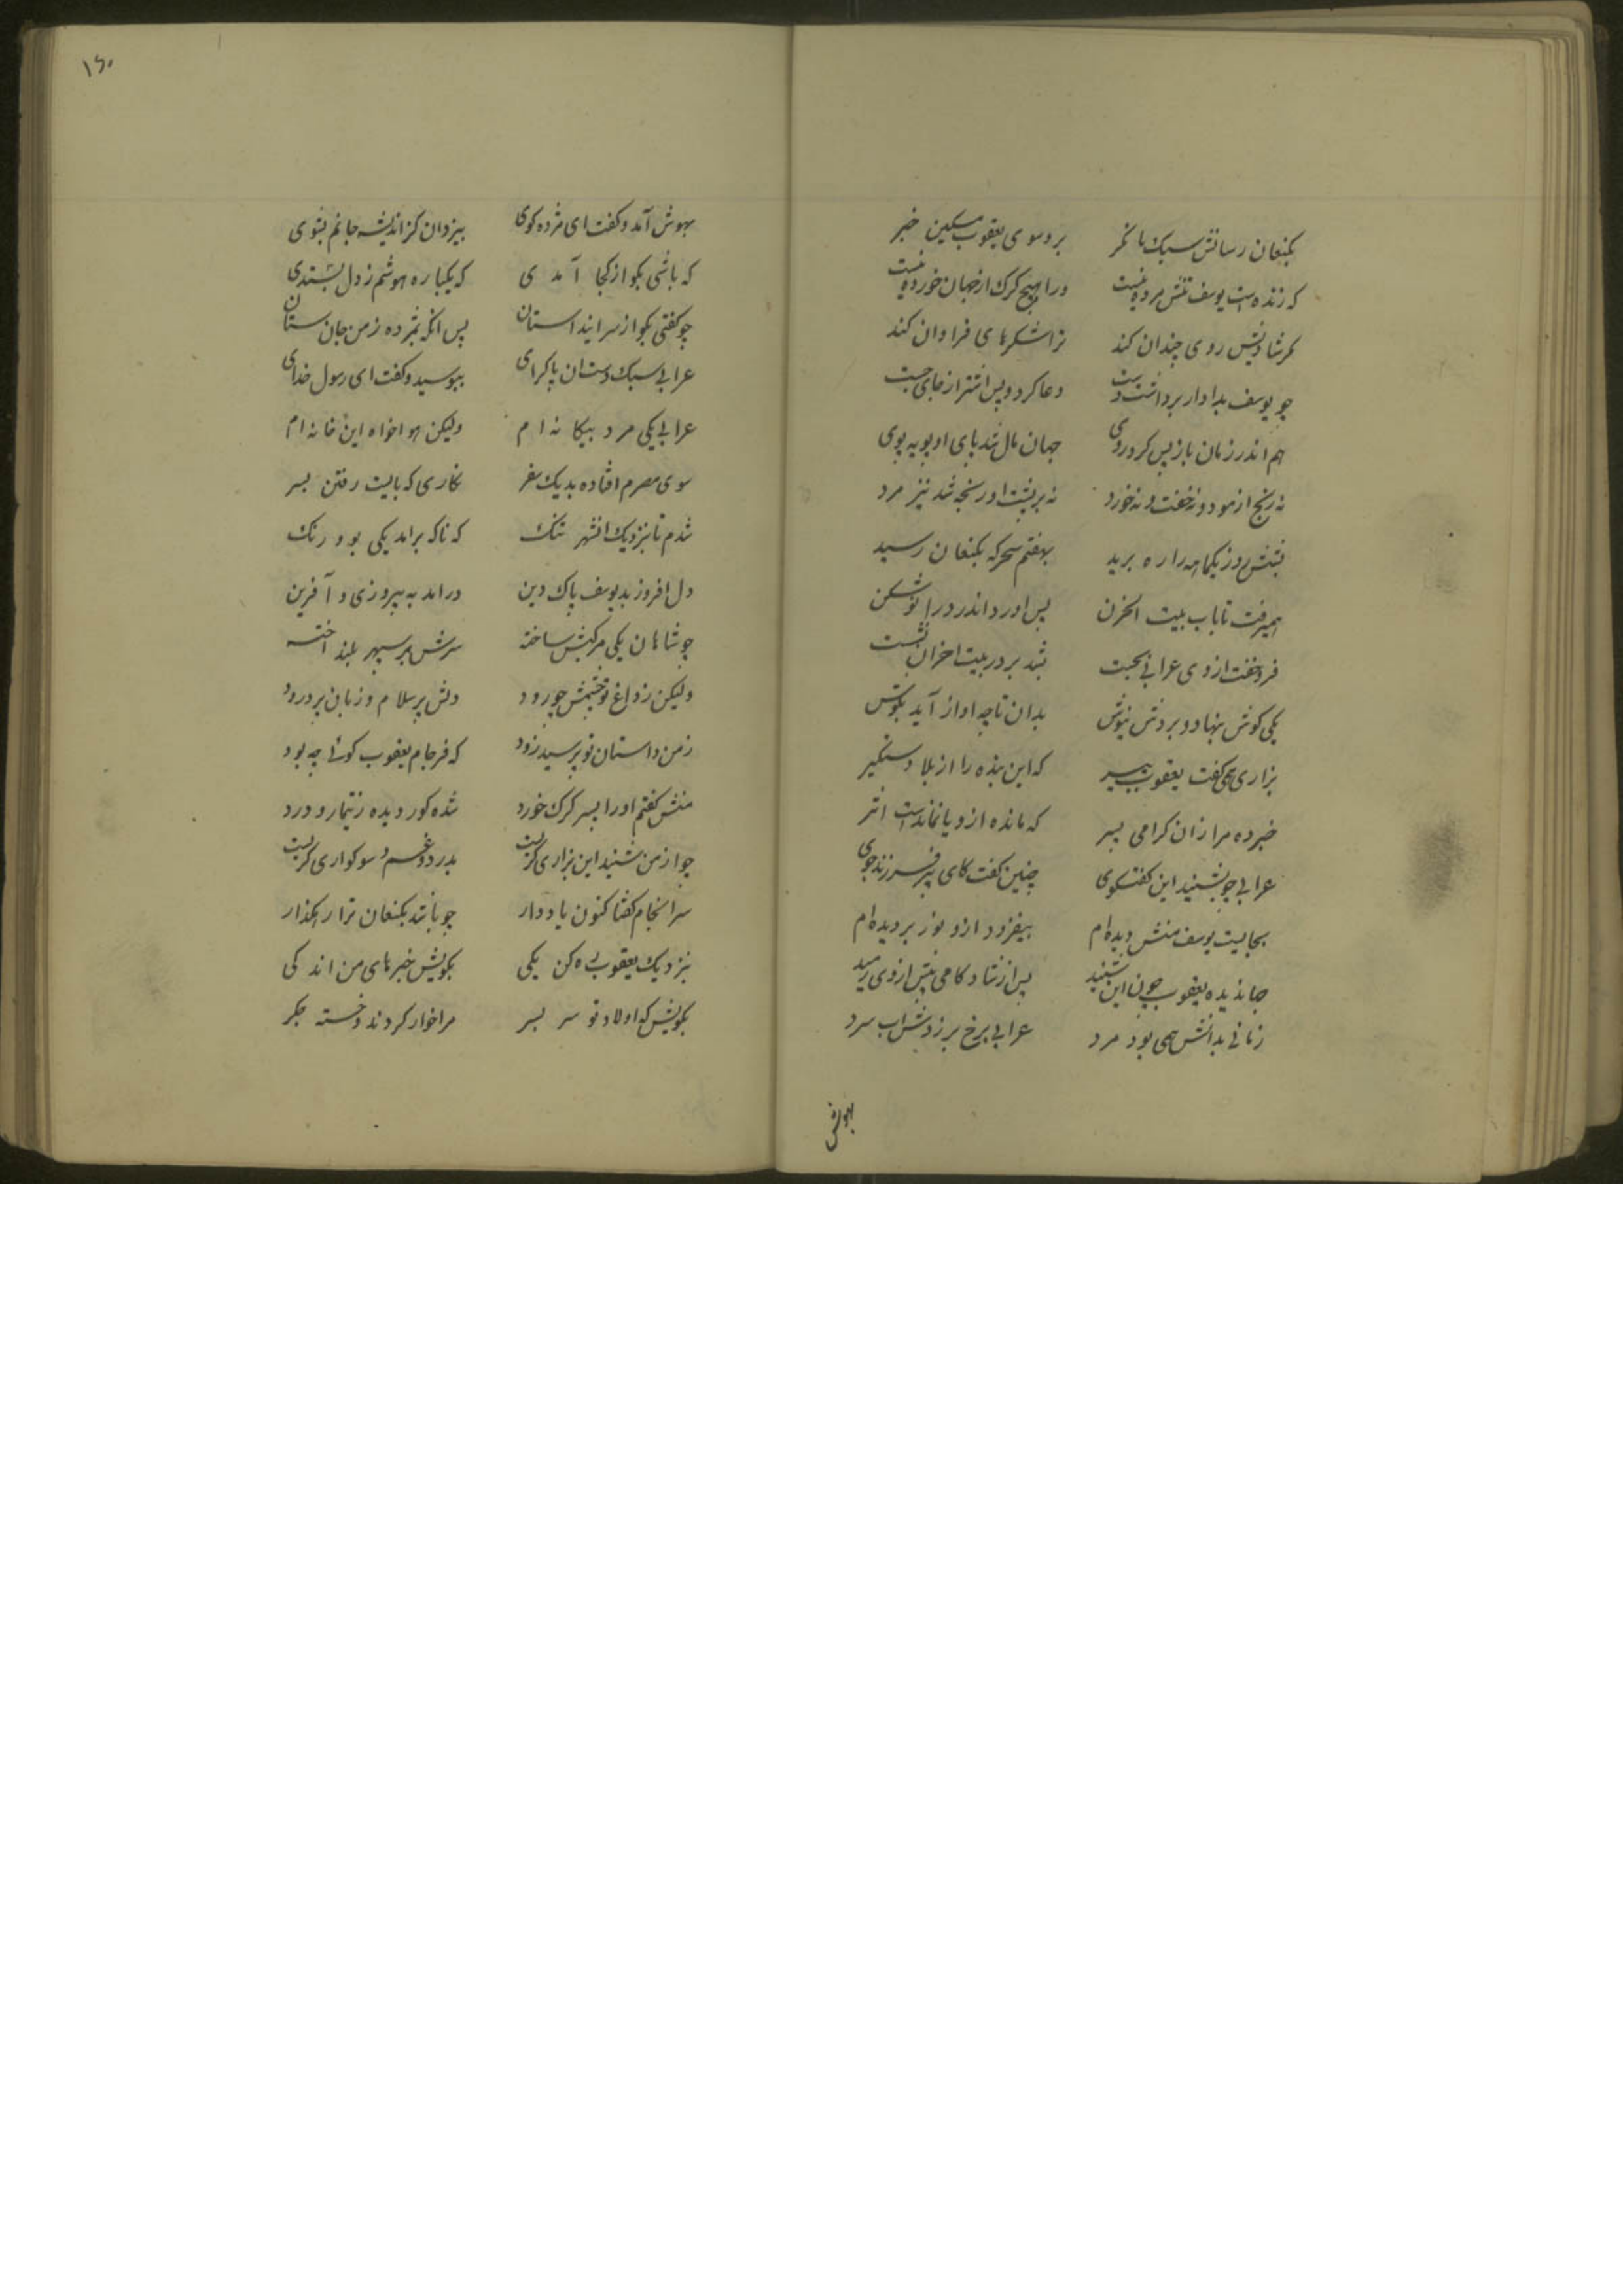 بکنعان رسانش سبک با کمر برو سوی یعقوب مسکین خبر
که زنده است یوسف تنش مرده نیست ورا هیچ کرک از جهان خورده نیست
کر شادیش روی چندان کند ترا شکرهای فراوان کند
چو یوسف بدادار برداشت دست دعا کرد و پس اشتر از جای جست
هم اندر زمان باز پس کرد روی جهان مال شد پای او پویه پوی
نه رنج ازمود و نه خفت و نه خورد نه بر پشت او رنجه شد نیز مرد
بشش روز یکماهه را ره برید بهفتم سحرکه بکنعان رسید
همیرفت تا باب بیت الحزن پس اورد اندر در
فروخفت از وی عرابی بجست بشد بر در بیت احزان نشست
یکی کوش بنهاد و بر دش نیوش بدان تا چه اواز آید بکوش
بزاری همی کفت یعقوب پیر که این بنده را از بلا دستکیر
خبر ده مرا زان کرامی پسر که مانده ازو یا نماندست اثر
عرابی چو بشنید این کفتکوی چنین کفت کای پیر فرزند جوی
بجایست یوسف منش دیده‌ام بیفزود ازو نور بر دیده‌ام
جهاندیده یعقوب چون این شنید پس از شادکامی بیش از وی رمید
زمانی بدانش همی بود مرد عرابی برخ بر زدش اب سرد
بهوش
۱۶۰
بهوش آمد و کفت ای مژده کوی بیزدان کز اندیشه جانم بشوی
که باشی بکو از کجا آمدی که یکباره هوشم ز دل بستدی
چو کفتی بکو از سر این داستان پس انکه بمژده ز من جان ستان
عرابی سبک دست ان پاکرای ببوسید و کفت ای رسول خدای
عرابی یکی مرد بیکانه ام ولیکن هواخواه این خانه ام
سوی مصرم افتاده بد یک سفر بکاری که بایست رفتن بسر
شدم تا بنزدیک انشهر تنک که ناکه برامد یکی بو و رنک
دل افروز بد یوسف پاک دین درامد به پیروزی و آفرین
چو شاهان یکی مرکبش ساخته سرش بر سپهر بلند اخته
ولیکن ز داغ تو چشمش چو رود دلش پر سلام و زبان پر درود
ز من داستان تو پرسید زود که فرجام یعقوب کوئی چه بود
منش کفتم اورا پسر کرک خورد شده کور دیده ز تیمار و درد
چو از من شنید این بزاری کریست بدرد و غم و سوکواری کریست
سرانجام کفتا کنون یاد دار چو باشد بکنعان ترا رهکذار
بنزدیک یعقوب ره کن یکی بکویش خبرهای من اندکی
بکویش که اولاد تو سر بسر مرا خوار کردند و خسته جکر